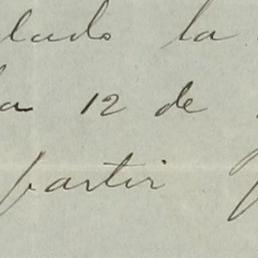 lado la
a 12 de
partir